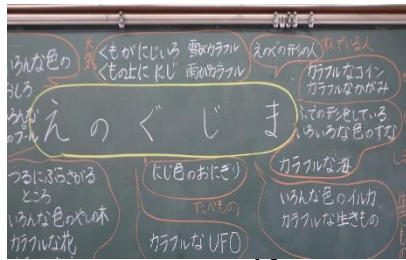 いろんな色の
しろ
天気
くもがにじいろ 雪がカラフル
くもの上ににじ 雨がカラフル
えのぐの形の人
すんでいる人
カラフルなコイン
カラフルなかがみ
えのぐじま
ふでの形をしている
いろいろな色のすな
カラフルな海
つるにぶらさがる
ところ
いろんな色のやしの木
カラフルな花
にじ色のおにぎり
たべもの
カラフルなUFO
いろんな色のイルカ
カラフルな生きもの